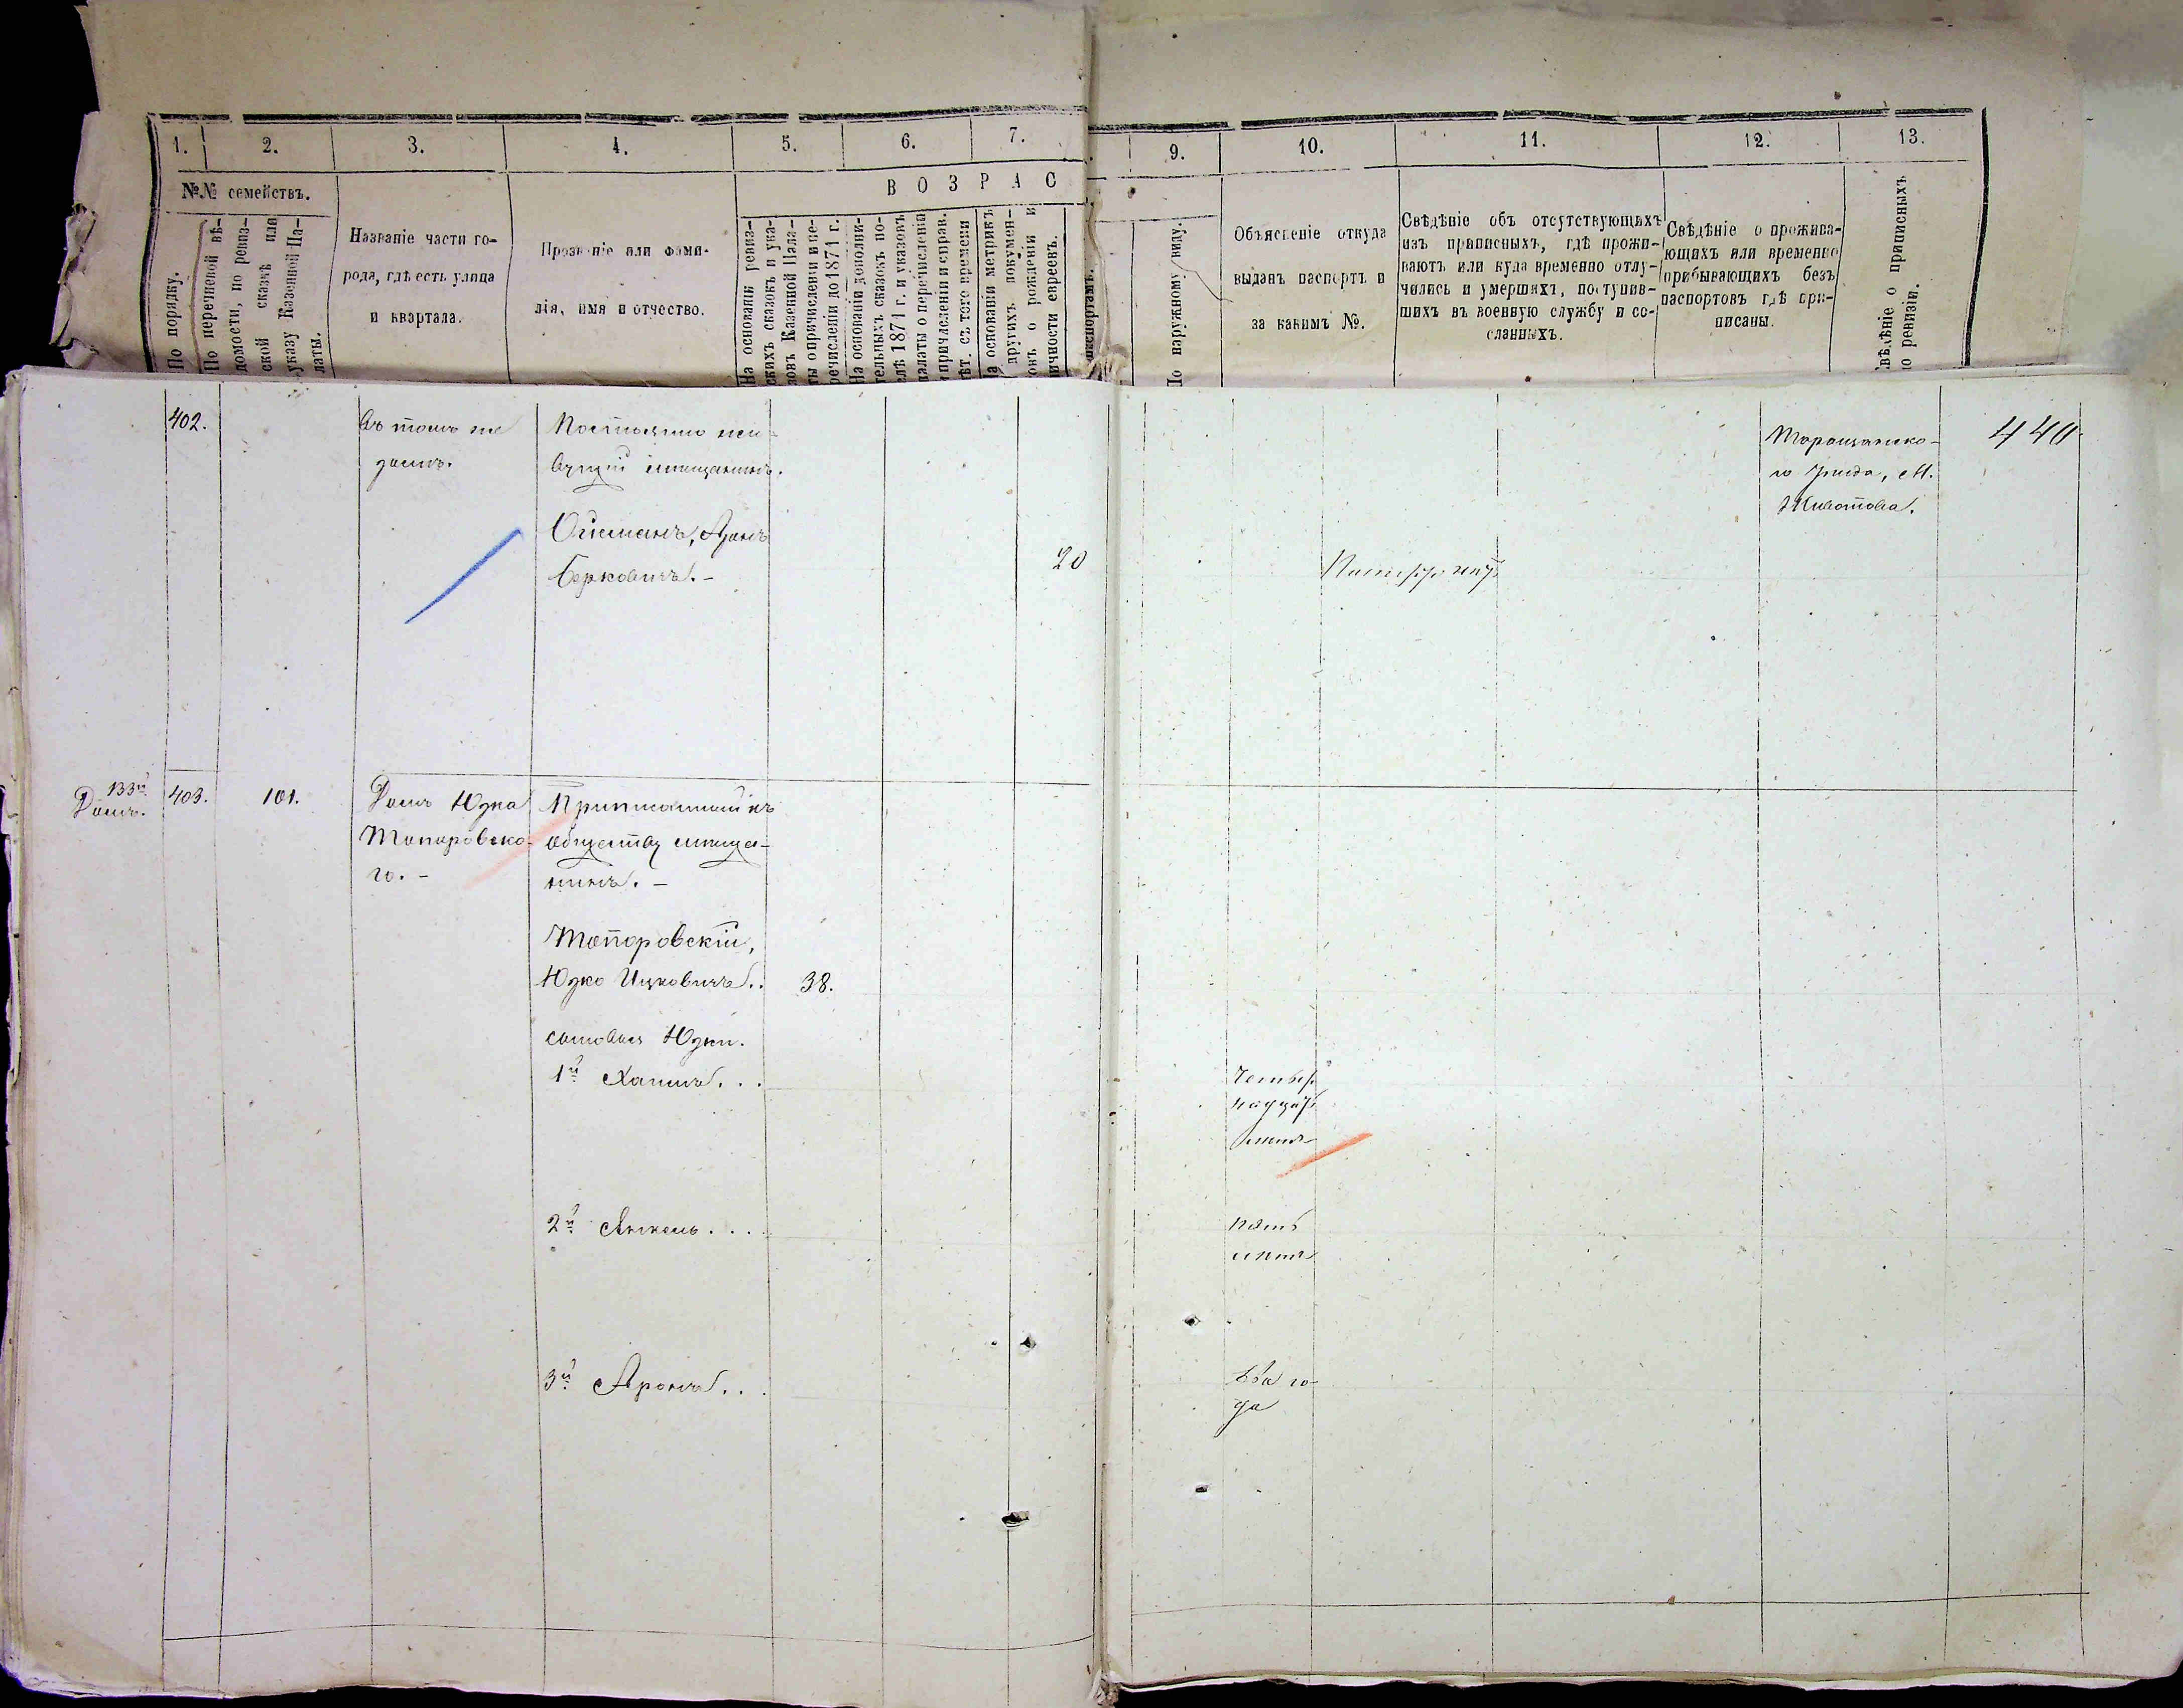 1. 2. 3. 4. 5. 6. 7. 9. 10. 11. 12. 13.
№№ семействъ.
По порядку.
По перечневой вѣ-
домости, по ревиз-
ской сказкѣ или
указу Казенной Па-
латы.
Названіе части го-
рода, гдѣ есть улица
и квартала.
Прозваніе или фами-
лія, имя и отчество.
ВОЗРАС
На основаніи ревиз-
скихъ сказокъ и ука-
зовъ Казенной Пала-
ты о причисленіи и пе-
речисленіи до 1871 г.
На основаніи дополни-
тельныхъ сказокъ по-
слѣ 1871 г. и указовъ
палаты о перечисленіи
и причисленіи и справ.
лѣт. съ того времени
На основаніи метрикъ
другихъ докумен-
овъ о рожденіи и
личности евреевъ.
По наружному виду.
Объясненіе откуда
выданъ паспортъ и
за какимъ №.
Свѣдѣніе объ отсутствующихъ
изъ приписныхъ, гдѣ прожи-
ваютъ или куда временно отлу-
чились и умершихъ, поступив-
шихъ въ военную службу и со-
сланныхъ.
Свѣдѣніе о прожива-
ющихъ или временно
прибывающихъ безъ
паспортовъ гдѣ при-
писаны.
Свѣдѣніе о приписныхъ
по ревизіи.
402.
Въ томъ же
домѣ.
Постоянно жи-
вущій мѣщанинъ.
Берковичъ. -
20
Таращанско-
го уѣзда, М.
Животова.
440
133й
Домъ.
403.
101.
Домъ Юдка
Топоровско-
го. -
Приписанный къ
обществу мѣща-
нинъ. -
Топоровскій,
Юдко Ицковичъ..
38.
сыновья Юдки.
1й Хаимъ...
четыр-
надцать
лѣтъ
2й Янкель....
пять
лѣтъ
3й Аронъ...
два го-
да